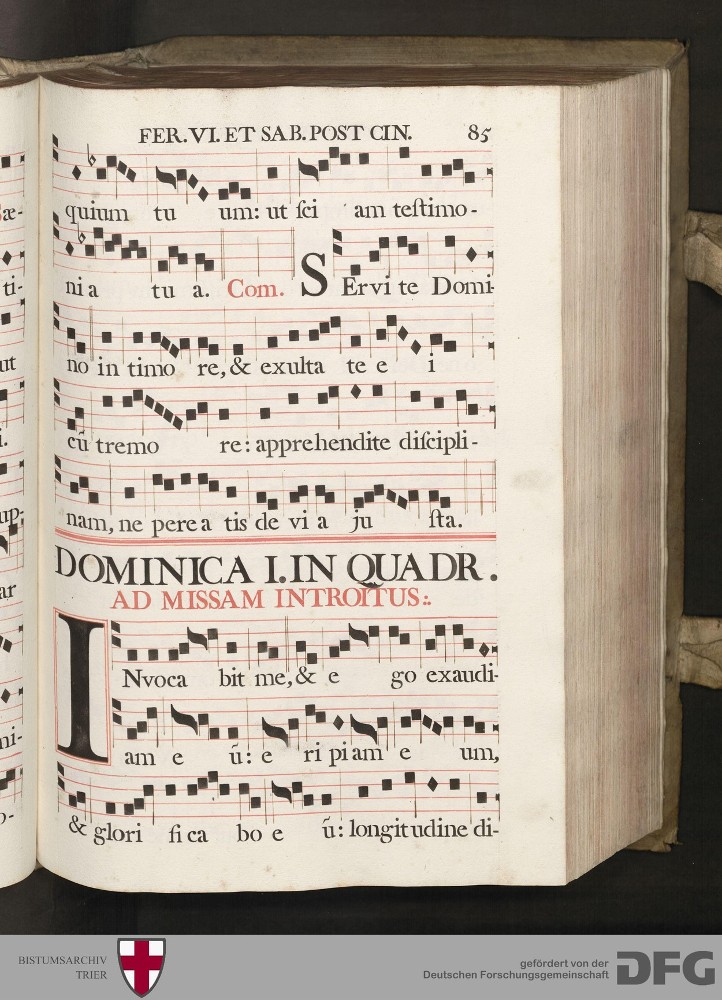 FER.VI.ET SAB.POST CIN. 85
quium tu um: ut ſci am teſtimo-
ni a tu a. Com. S Ervi te Domi-
no in timo re,& exulta te e i
cū tremo re: apprehendite diſcipli-
nam, ne pere a tis de vi a ju ſta.
DOMINICA I.IN QUADR.
AD MISSAM INTROITUS:.
I Nvoca bit me,& e go exaudi-
am e ū: e ri piam e um,
& glori fi ca bo e ū: longitudine di-
æ-
ti-
ut
i.
up-
ar
ni-
o-
BISTUMSARCHIV
TRIER
gefördert von der
Deutschen Forschungsgemeinschaft
DFG